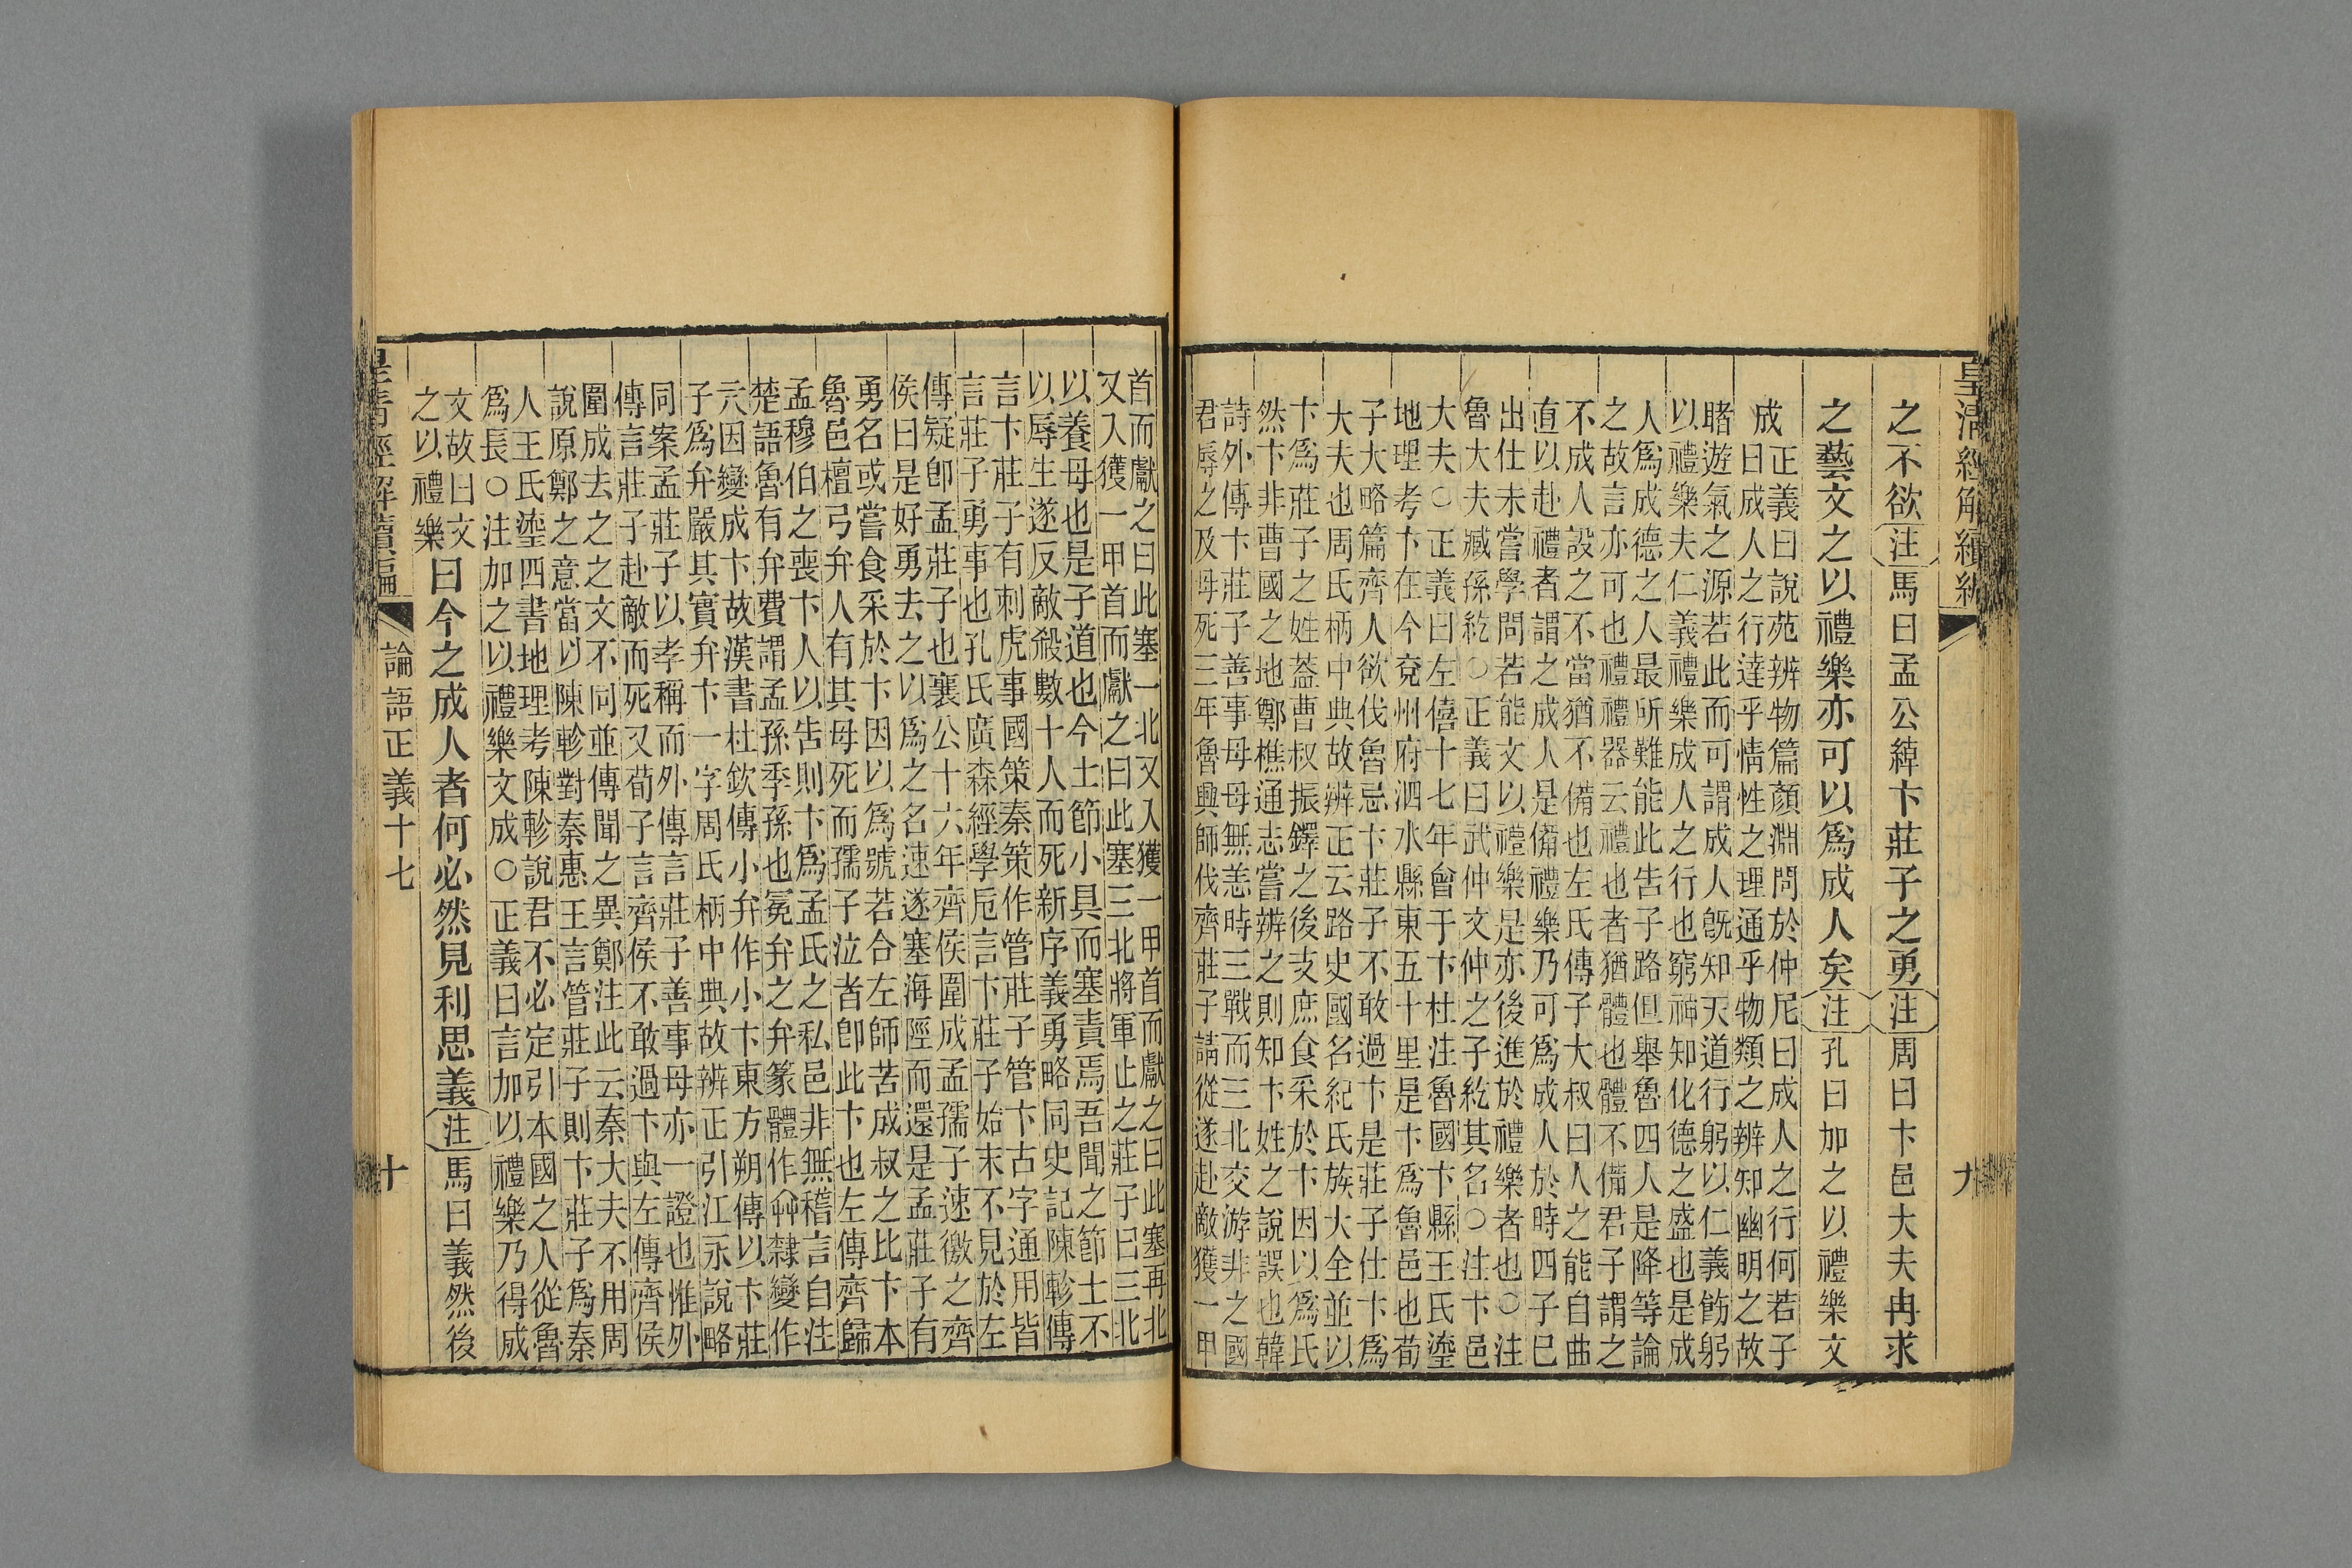 皇清經解續編
九
之不欲注馬曰孟公綽卞莊子之勇注周曰卞邑大夫冉求
之藝文之以禮樂亦可以爲成人矣注孔曰加之以禮樂文
成
正義曰說苑辨物篇顏淵問於仲尼曰成人之行何若子
曰成人之行達乎情性之理通乎物類之辨知幽明之故
睹遊氣之源若此而可謂成人旣知天道行躬以仁義飭躬
以禮樂夫仁義禮樂成人之行也窮神知化德之盛也是成
人爲成德之人最所難能此告子路但舉魯四人是降等論
之故言亦可也禮禮器云禮也者猶體也體不備君子謂之
不成人設之不當猶不備也左氏傳子大叔曰人之能自曲
直以赴禮者謂之成人是備禮樂乃可爲成人於時四子巳
出仕未嘗學問若能文以禮樂是亦後進於禮樂者也○注
魯大夫臧孫紇○正義曰武仲文仲之子紇其名○注卞邑
大夫○正義曰左僖十七年會于卞杜注魯國卞縣王氏瀅
地理考卞在今兗州府泗水縣東五十里是卞爲魯邑也荀
子大略篇齊人欲伐魯忌卞莊子不敢過卞是莊子仕卞爲
大夫也周氏柄中典故辨正云路史國名紀氏族大全並以
卞爲莊子之姓葢曹叔振鐸之後支庶食采於卞因以爲氏
然卞非曹國之地鄭樵通志嘗辨之則知卞姓之說誤也韓
詩外傳卞莊子善事母母無恙時三戰而三北交游非之國
君辱之及母死三年魯興師伐齊莊子請從遂赴敵獲一甲
首而獻之曰此塞一北又入獲一甲首而獻之曰此塞再北
又入獲一甲首而獻之曰此塞三北將軍止之莊子曰三北
以養母也是子道也今士節小具而塞責焉吾聞之節士不
以辱生遂反敵殺數十人而死新序義勇略同史記陳軫傳
言卞莊子有刺虎事國策秦策作管莊子管卞古字通用皆
言莊子勇事也孔氏廣森經學卮言卞莊子始末不見於左
傳疑卽孟莊子也襄公十六年齊侯圍成孟孺子速徼之齊
侯曰是好勇去之以爲之名速遂塞海陘而還是孟莊子有
勇名或嘗食采於卞因以爲號若合左師苦成叔之比卞本
魯邑檀弓弁人有其母死而孺子泣者卽此卞也左傳齊歸
孟穆伯之喪卞人以告則卞爲孟氏之私邑非無稽言自注
楚語魯有弁費謂孟孫季孫也冕弁之弁篆體作𠔉隸變作
元因變成卞故漢書杜欽傳小弁作小卞東方朔傳以卞莊
子爲弁嚴其實弁卞一字周氏柄中典故辨正引江永說略
同案孟莊子以孝稱而外傳言莊子善事母亦一證也惟外
傳言莊子赴敵而死又荀子言齊侯不敢過卞與左傳齊侯
圍成去之之文不同並傳聞之異鄭注此云秦大夫不用周
說原鄭之意當以陳軫對秦惠王言管莊子則卞莊子爲秦
人王氏瀅四書地理考陳軫說君不必定引本國之人從魯
爲長○注加之以禮樂文成○正義曰言加以禮樂乃得成
文故曰文
之以禮樂曰今之成人者何必然見利思義注馬曰義然後
皇清經解續編
論語正義十七
十